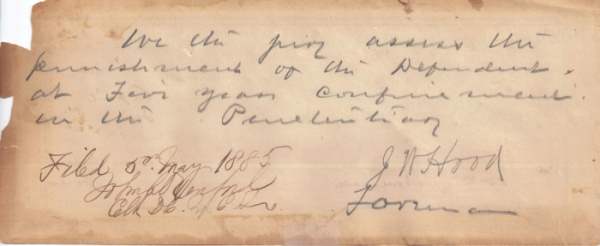 We the jury assess the
punishment of the Defendent.
at Five years confinement
in the Penetentiary
Filed 5" May 1885
J W Hood
John
Clk DC
Foreman